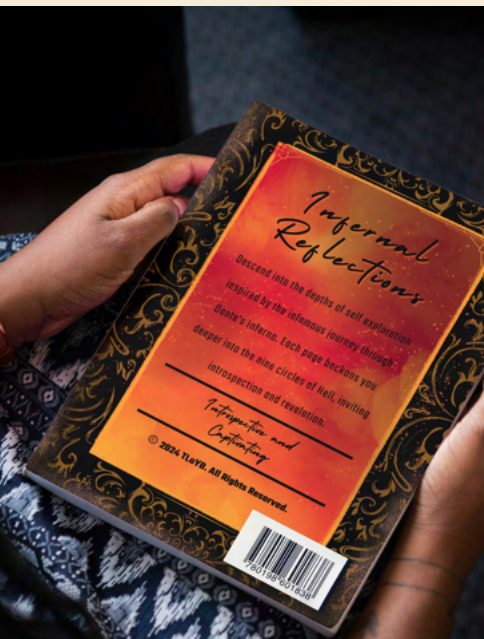 Infernal
Reflections
Descend into the depths of self exploration
inspired by the infamous journey through
Dante's Inferno. Each page beckons you
deeper into the nine circles of Hell, inviting
introspection and revelation.
Introspective and
Captivating
© 2024 TLoYB. All Rights Reserved.
780198 601838